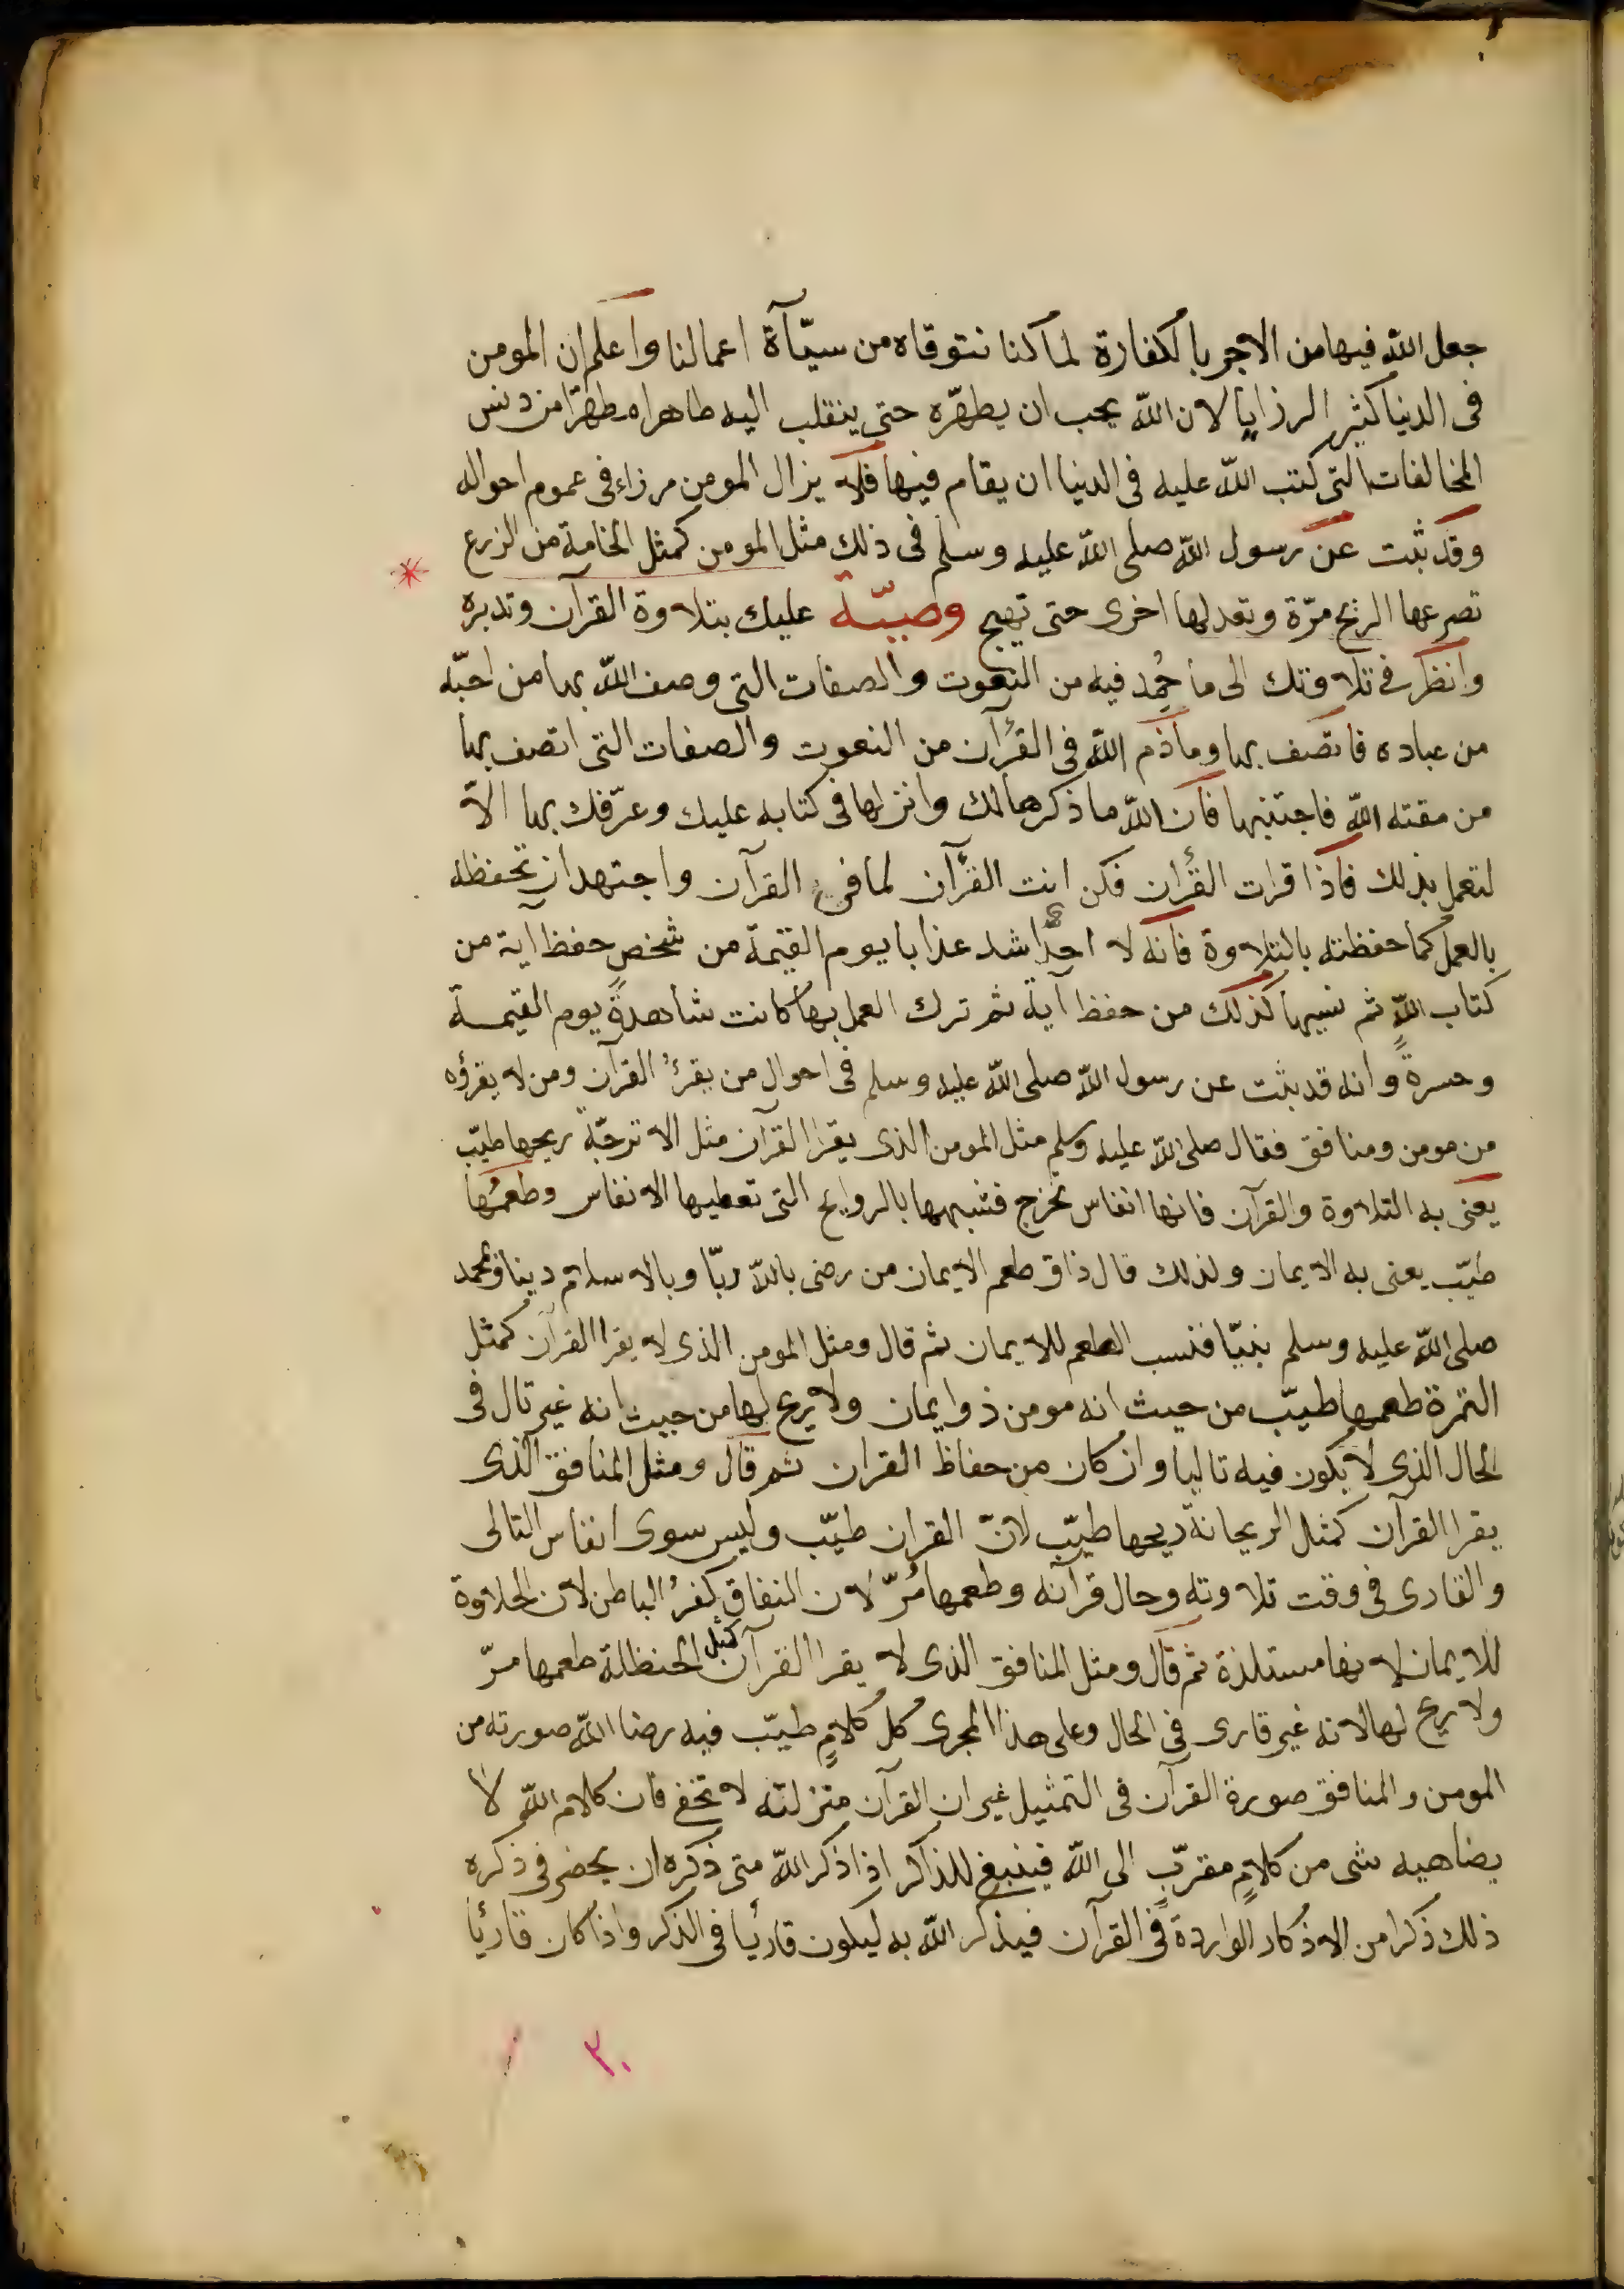 جعل الله فيها من الاجر بالكفارة لما كنا نتوقاه من سيّآة اعمالنا واعلم ان المومن
فى الدنيا كثير الرزايا لان الله يحب ان يطهّره حتى ينقلب اليه طاهرا مطهّرا من دنس
المخالفات التى كتب الله عليه فى الدنيا ان يقام فيها فلا يزال المومن مرزاء فى عموم احواله
وقد ثبت عن رسول الله صلى الله عليه وسلم فى ذلك مثل المومن كمثل الخامة من الزرع
تصرعها الريح مرّة وتعدلها اخرى حتى تهيج وصيّة عليك بتلاوة القرآن وتدبره
وانظر فى تلاوتك الى ما حُمد فيه من النعوت والصفات التى وصف الله بها من احبّه
من عباده فاتصف بها وما ذم الله فى القرآن من النعوت والصفات التى اتصف بها
من مقته الله فاجتنبها فان الله ما ذكرها لك وانزلها فى كتابه عليك وعرّفك بها الاّ
لتعمل بذلك فاذا قرات القرآن فكن انت القرآن لما فى القرآن واجتهد ان تحفظه
بالعمل كما حفظته بالتلاوة فانه لا احدٌ اشد عذابا يوم القيمة من شخصٍ حفظ آية من
كتاب الله ثم نسيها كذلك من حفظ آية ثم ترك العمل بها كانت شاهدةً يوم القيمة
وحسرةً وانه قد ثبت عن رسول الله صلى الله عليه وسلم فى احوال من يقرءُ القرآن ومن لا يقرؤه
من مومن ومنافق فقال صلى الله عليه وسلم مثل المومن الذى يقرا القرآن مثل الاترجّة ريحها طيّب
يعنى به التلاوة والقرآن فانها انفاس تخرج فشبهها بالروايح التى تعطيها الانفاس وطعمُها
طيّب يعنى به الايمان ولذلك قال ذاق طعم الايمان من رضى بالله ربّا وبالاسلام دينا وبمحمد
صلى الله عليه وسلم نبيّا فنسب الطعم للايمان ثم قال ومثل المومن الذى لا يقرا القرآن كمثل
التمرة طعمها طيّب من حيث انه مومن ذو ايمان ولا ريح لها من حيث انه غير تال فى
الحال الذى لا يكون فيه تاليا وان كان من حفاظ القران ثم قال ومثل المنافق الذى
يقرا القرآن كمثل الريحانة ريحها طيّب لانّ القران طيّب وليس سوى انفاس التالى
والقارى فى وقت تلاوته وحال قرآنه وطعمها مُرّ لان النفاق كفرُ الباطن لان الحلاوة
للايمان لانها مستلذة ثم قال ومثل المنافق الذى لا يقرا القرآن كمثل الحنظلة طعمها مرّ
ولا ريح لها لانه غير قارى فى الحال وعلى هذا المجرى كل كلامٍ طيّب فيه رضا الله صورته من
المومن والمنافق صورة القرآن فى التمثيل غير ان القرآن منزلته لا تخفى فان كلام الله لا
يضاهيه شى من كلامٍ مقربّ الى الله فينبغى للذاكر اذا ذكر الله متى ذكره ان يحضر فى ذكره
ذلك ذكرا من الاذكار الواردة فى القرآن فيذكر الله به ليكون قاريًا فى الذكر واذا كان قاريًا
٣٠